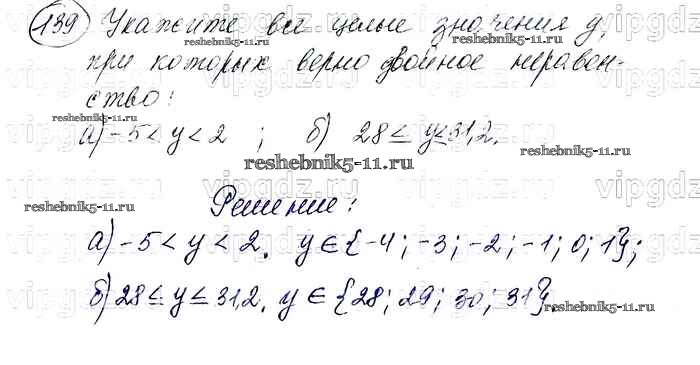 139 Укажите все целые значения y,
при которых верно двойное неравен-
ство:
а) -5 < y < 2 ; б) 28 ≤ y ≤ 31,2.
Решение:
а) -5 < y < 2. y ∈ {-4; -3; -2; -1; 0; 1};
б) 28 ≤ y ≤ 31,2. y ∈ {28; 29; 30; 31}.
reshebnik5-11.ru
reshebnik5-11.ru
reshebnik5-11.ru
reshebnik5-11.ru
reshebnik5-11.ru
reshebnik5-11.ru
reshebnik5-11.ru
reshebnik5-11.ru
reshebnik5-11.ru
vipgdz.ru